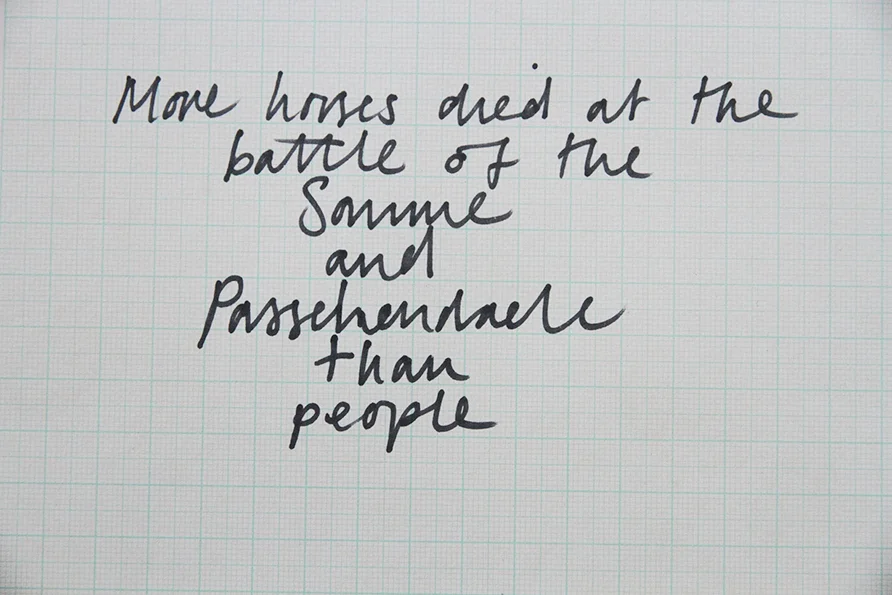 More horses died at the
battle of the
Somme
and
Passchendaele
than
people